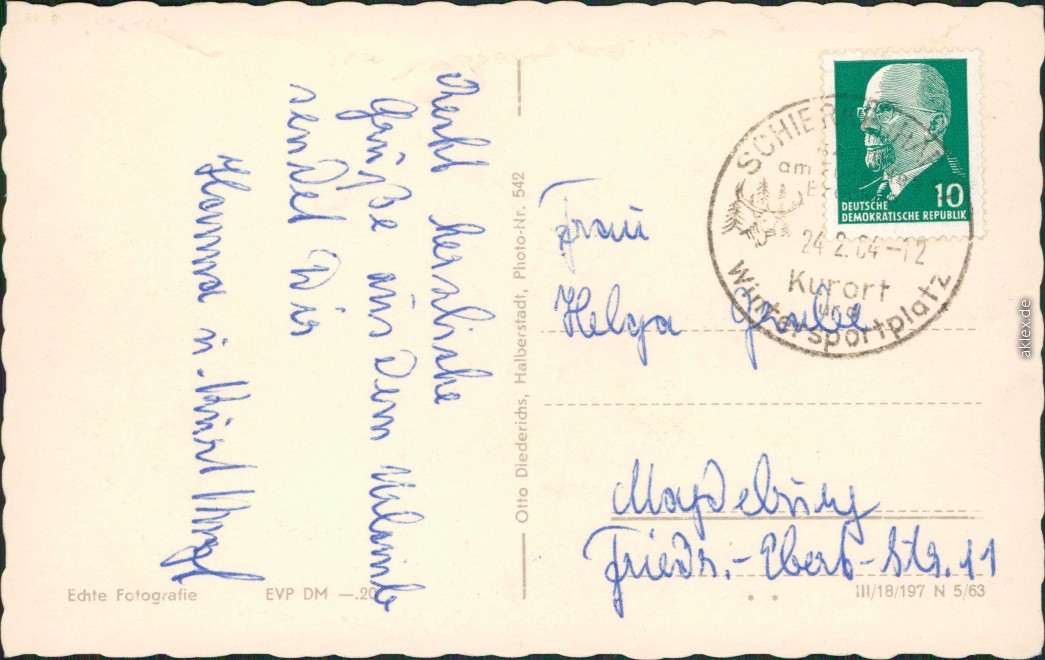 Recht herzliche
Grüße aus dem Urlaub
sendet Dir
Hanna u. Kurt
Otto Diederichs, Halberstadt, Photo-Nr. 542
Echte Fotografie
EVP DM —.20
SCHIERKE
am
24.2.64-12
Kurort
und
Wintersportplatz
10
DEUTSCHE
DEMOKRATISCHE REPUBLIK
Frau
Helga Grube
Magdeburg
Friedr.-Ebert-Str. 11
III/18/197 N 5/63
aklex.de